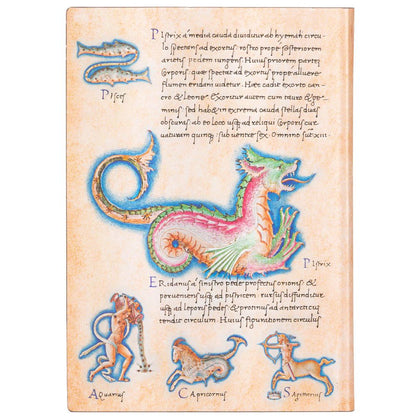 PIstrix a media cauda diuiditur ab hyemali circu
lo spectans ad exortus rostro prope posteriorem
arietis pedem iungens. Huius priorem partem
corporis quæ spectat ad exortus prope alluere
flumen eridani uidetur. Hæc cadit exorto can
cro & Leone. Exoritur autem cum tauro & ge
minis. sed habet in extrema cauda stellas duas
obscuras. ab eo loco usque ad reliqui corporis cur
uaturam quinque. sub uentre sex. Omnino sunt xiii.
Pisces
PIstrix
ERidanus a sinistro pede profectus orionis &
porueniens usque ad pistricem rursus diffunditur
usque ad leporis pedes & protinus ad antarcticum
tendit circulum. Huius figurationem circulus
AQuarius
CApricornus
SAgittarius